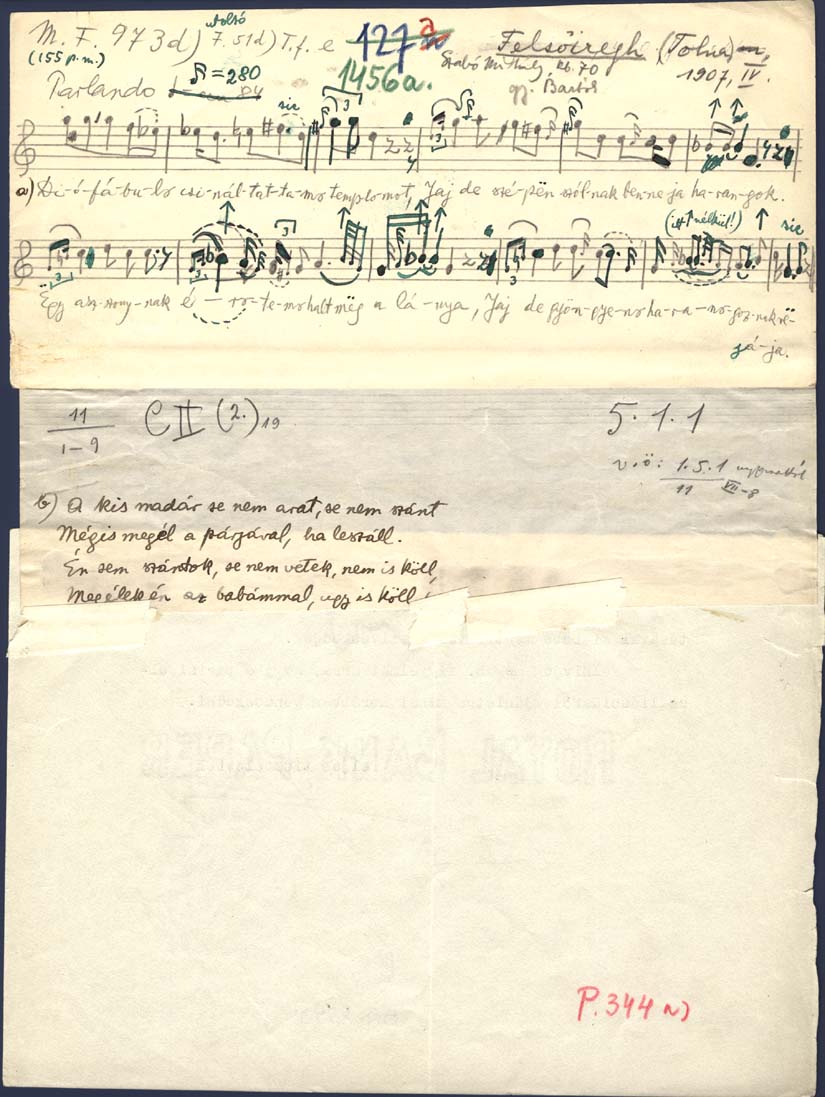 M. F. 973d) utolsó F. 51d) T.f. e 127 a
(155 p.m.)
1456a.
Felsőiregh (Tolna)
Szabó kb. 70
gy. Bartók
1907, IV.
Parlando = 280
84
sic
a) Di-ó-fá-bu-lo csi-nál-tat-ta-mo templomot, Jaj de szé-pën szól-nak ben-ne ja ha-ran-gok.
(itt nélkül!) sic
Ëgy asz-szony-nak ë-ro-te-mo halt mëg a lá-nya, Jaj de gyön-gye-no ha-ra-no-goz-nak rë-
já-ja.
11
1-9
C II (2.) 19
5. 1. 1
v.ö: 1.5.1
11 VII-8
b) A kis madár se nem arat, se nem szánt
Mégis megél a párjával, ha leszáll.
Én sem szántok, se nem vetek, nem is köll,
Megélek én az babámmal, ugy is köll
ROYAL BANK PAPER
P. 344